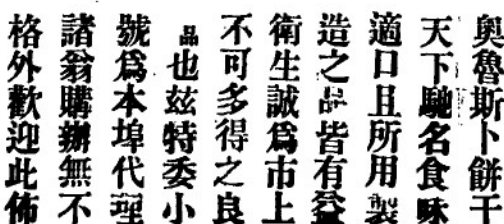 奧魯斯卜餅干
天下馳名食味
適口且所用製
造之品皆有益
衛生誠爲市上
不可多得之良
品也茲特委小
號爲本埠代理
諸翁購辦無不
格外歡迎此佈